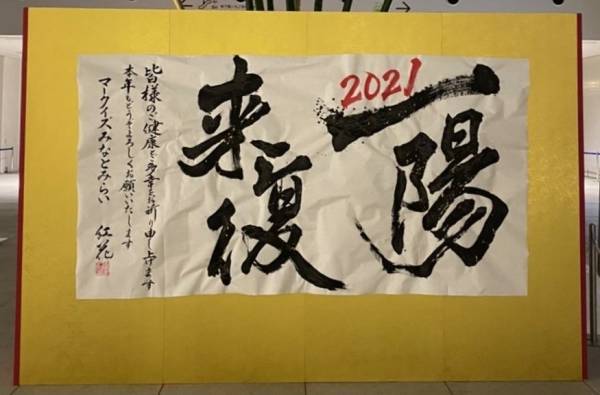 2021
一陽
来復
皆様のご健康とご多幸をお祈り申し上げます
本年もどうぞよろしくお願いいたします
マークイズみなとみらい
紅花